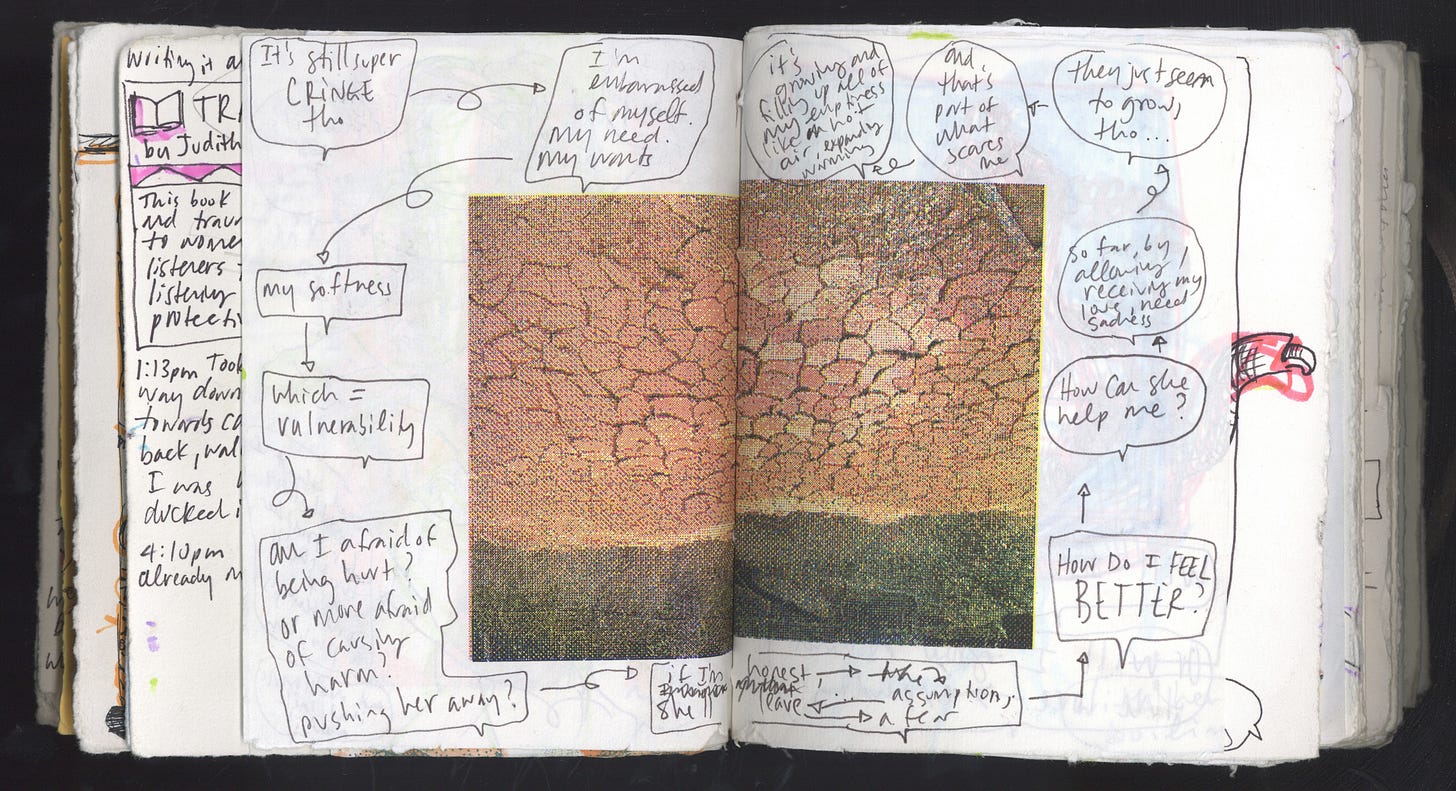 Writing it a
TRA
by Judith
This book
and traum
to women
listeners
listening
protecti
1:13pm Took
way down
towards ca
back, wal
I was
ducked i
4:10pm
already m
It's still super
CRiNGE
tho
I'm
embarrassed
of myself.
my need.
my wants
my softness
which =
vulnerability
am I afraid of
being hurt?
or more afraid
of causing
harm?
pushing her away?
if I'm honest
she'll leave
assumption,
a fear
How Do I FEEL
BETTER?
How can she
help me?
so far, by
allowing,
receiving my
love, need
sadness
they just seem
to grow,
tho...
and,
that's
part of
what
scares
me
it's
growing and
filling up all of
my emptiness
like hot
air expanding
warming